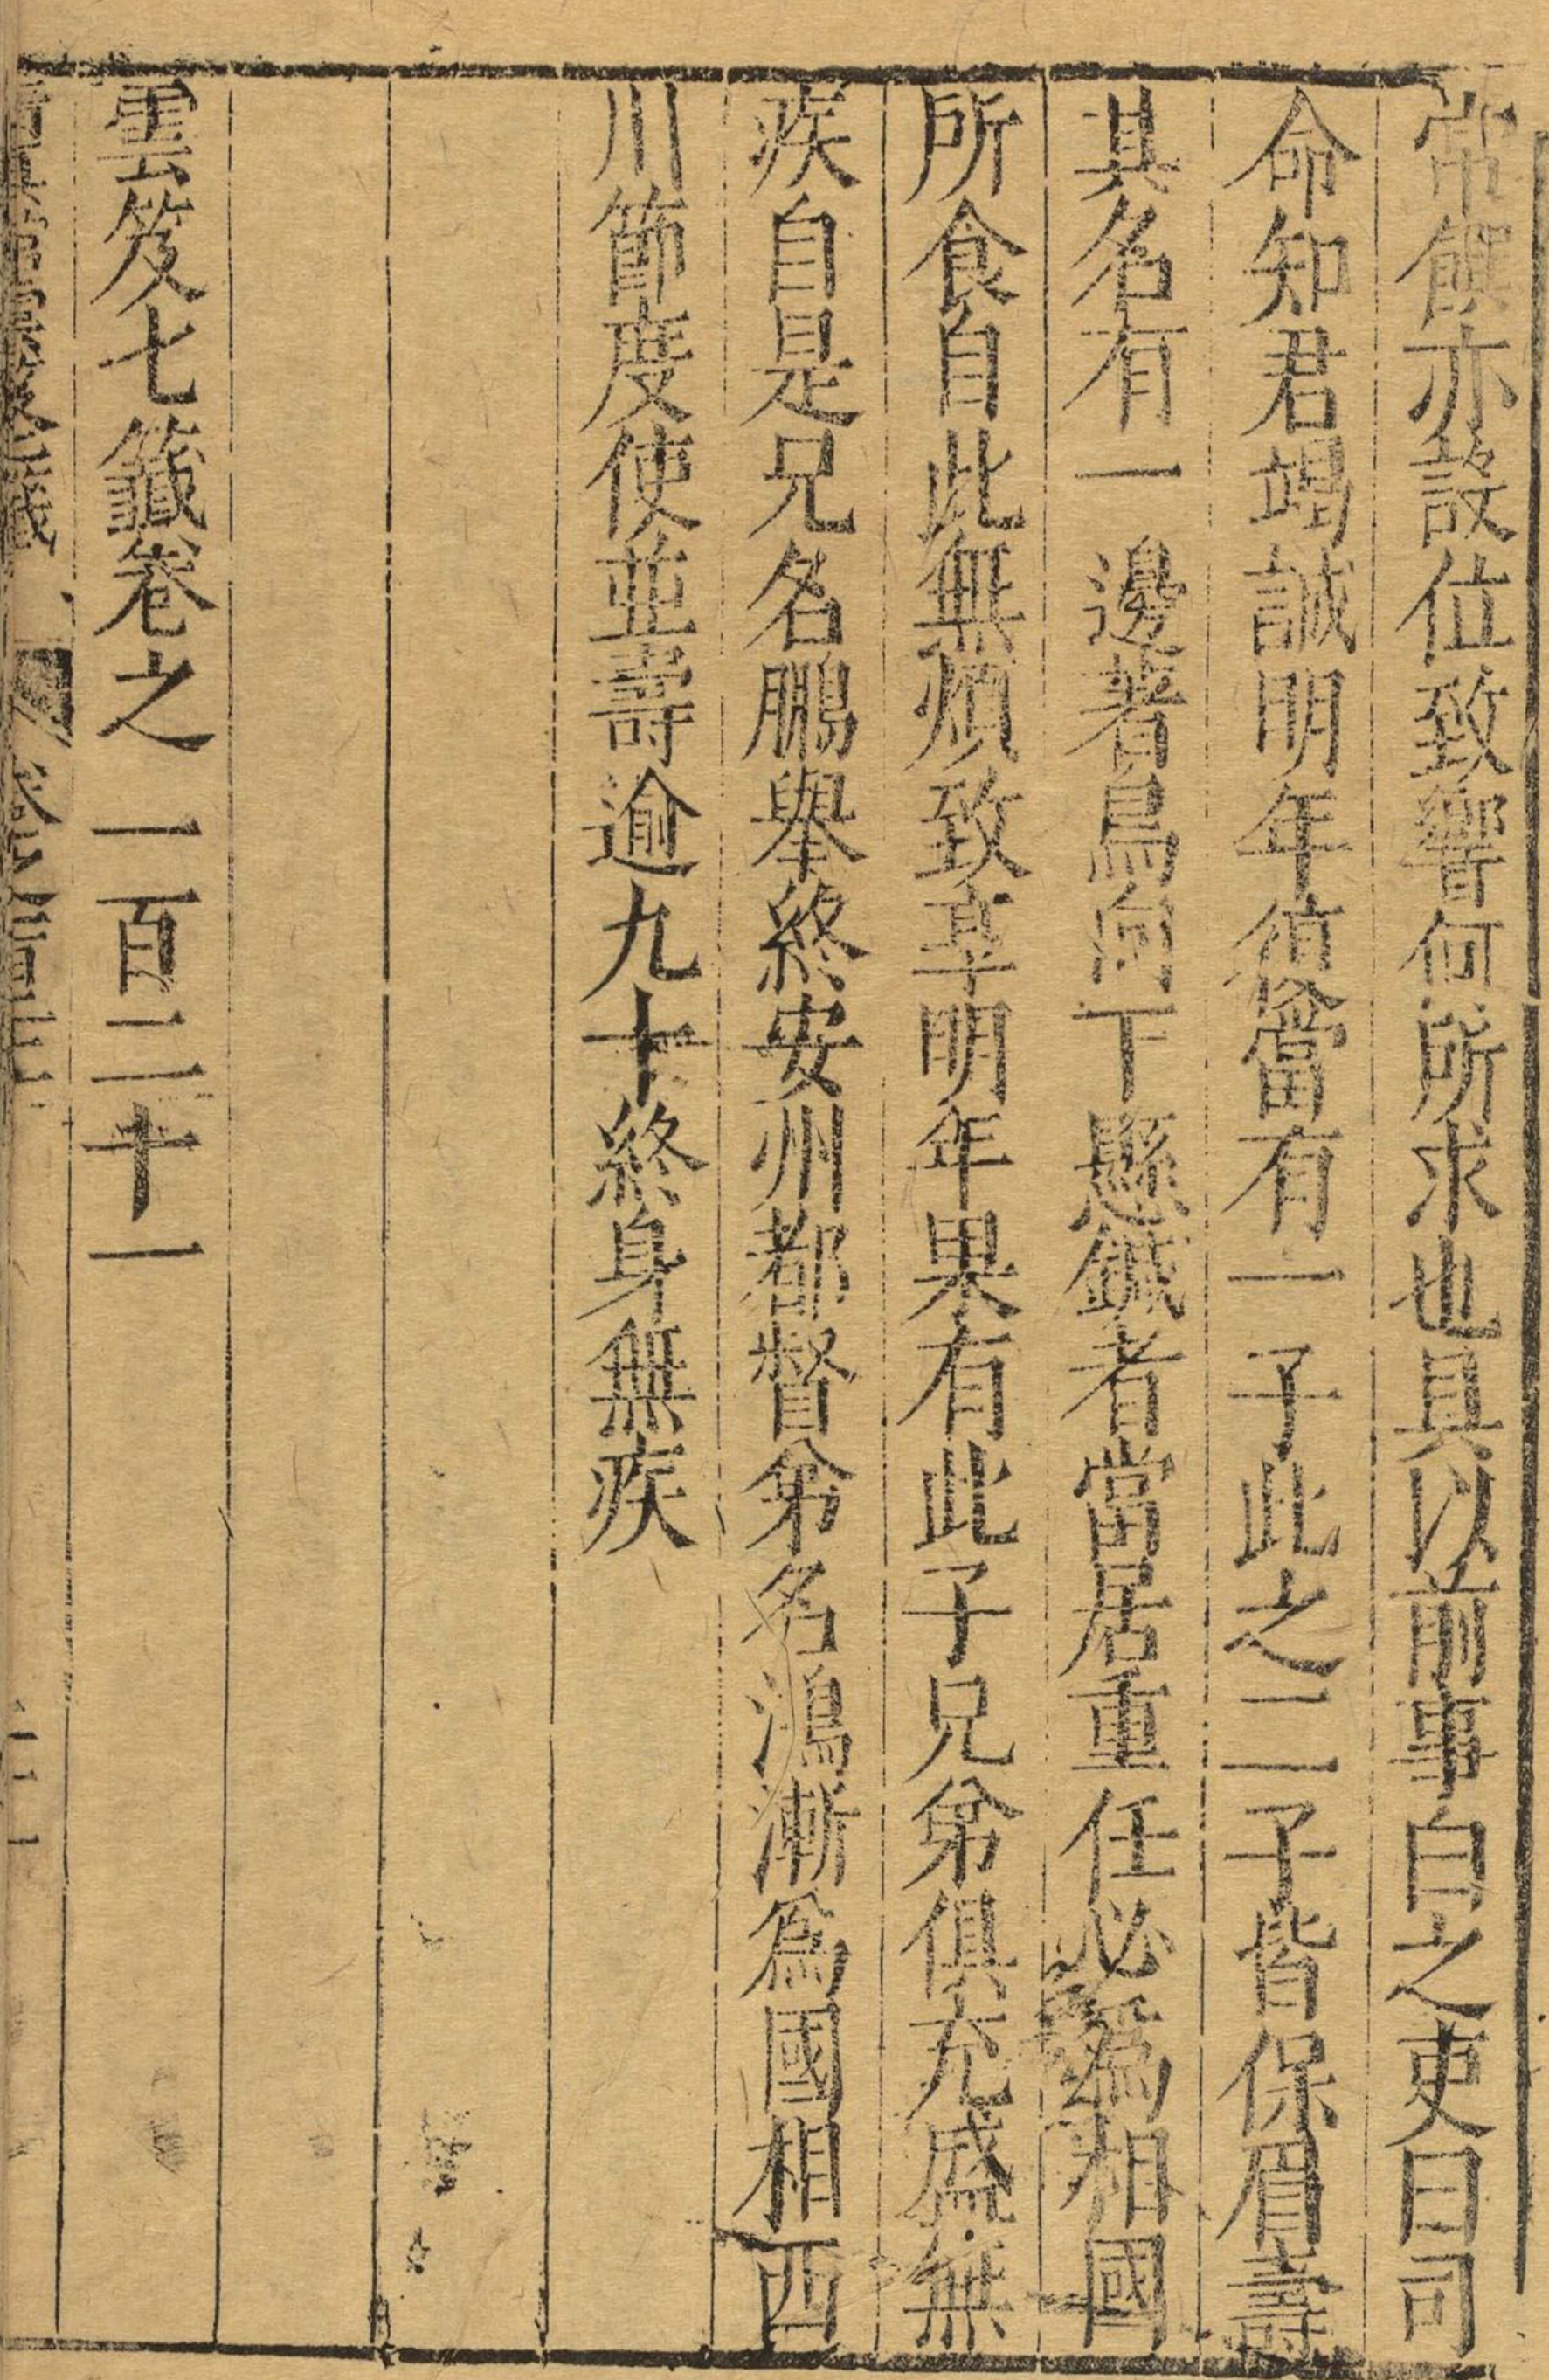 常饌亦設位致響何所求也具以前事白之吏曰司
命知君竭誠明年復當有一子此之二子皆保眉壽
其名有一邊著鳥向下懸鍼者當居重任必爲相國
所食自此無煩致享明年果有此子兄弟俱充盛無
疾自是兄名鵬舉終安州都督弟名鴻漸爲國相西
川節度使並壽逾九十終身無疾
雲笈七籤卷之一百二十一